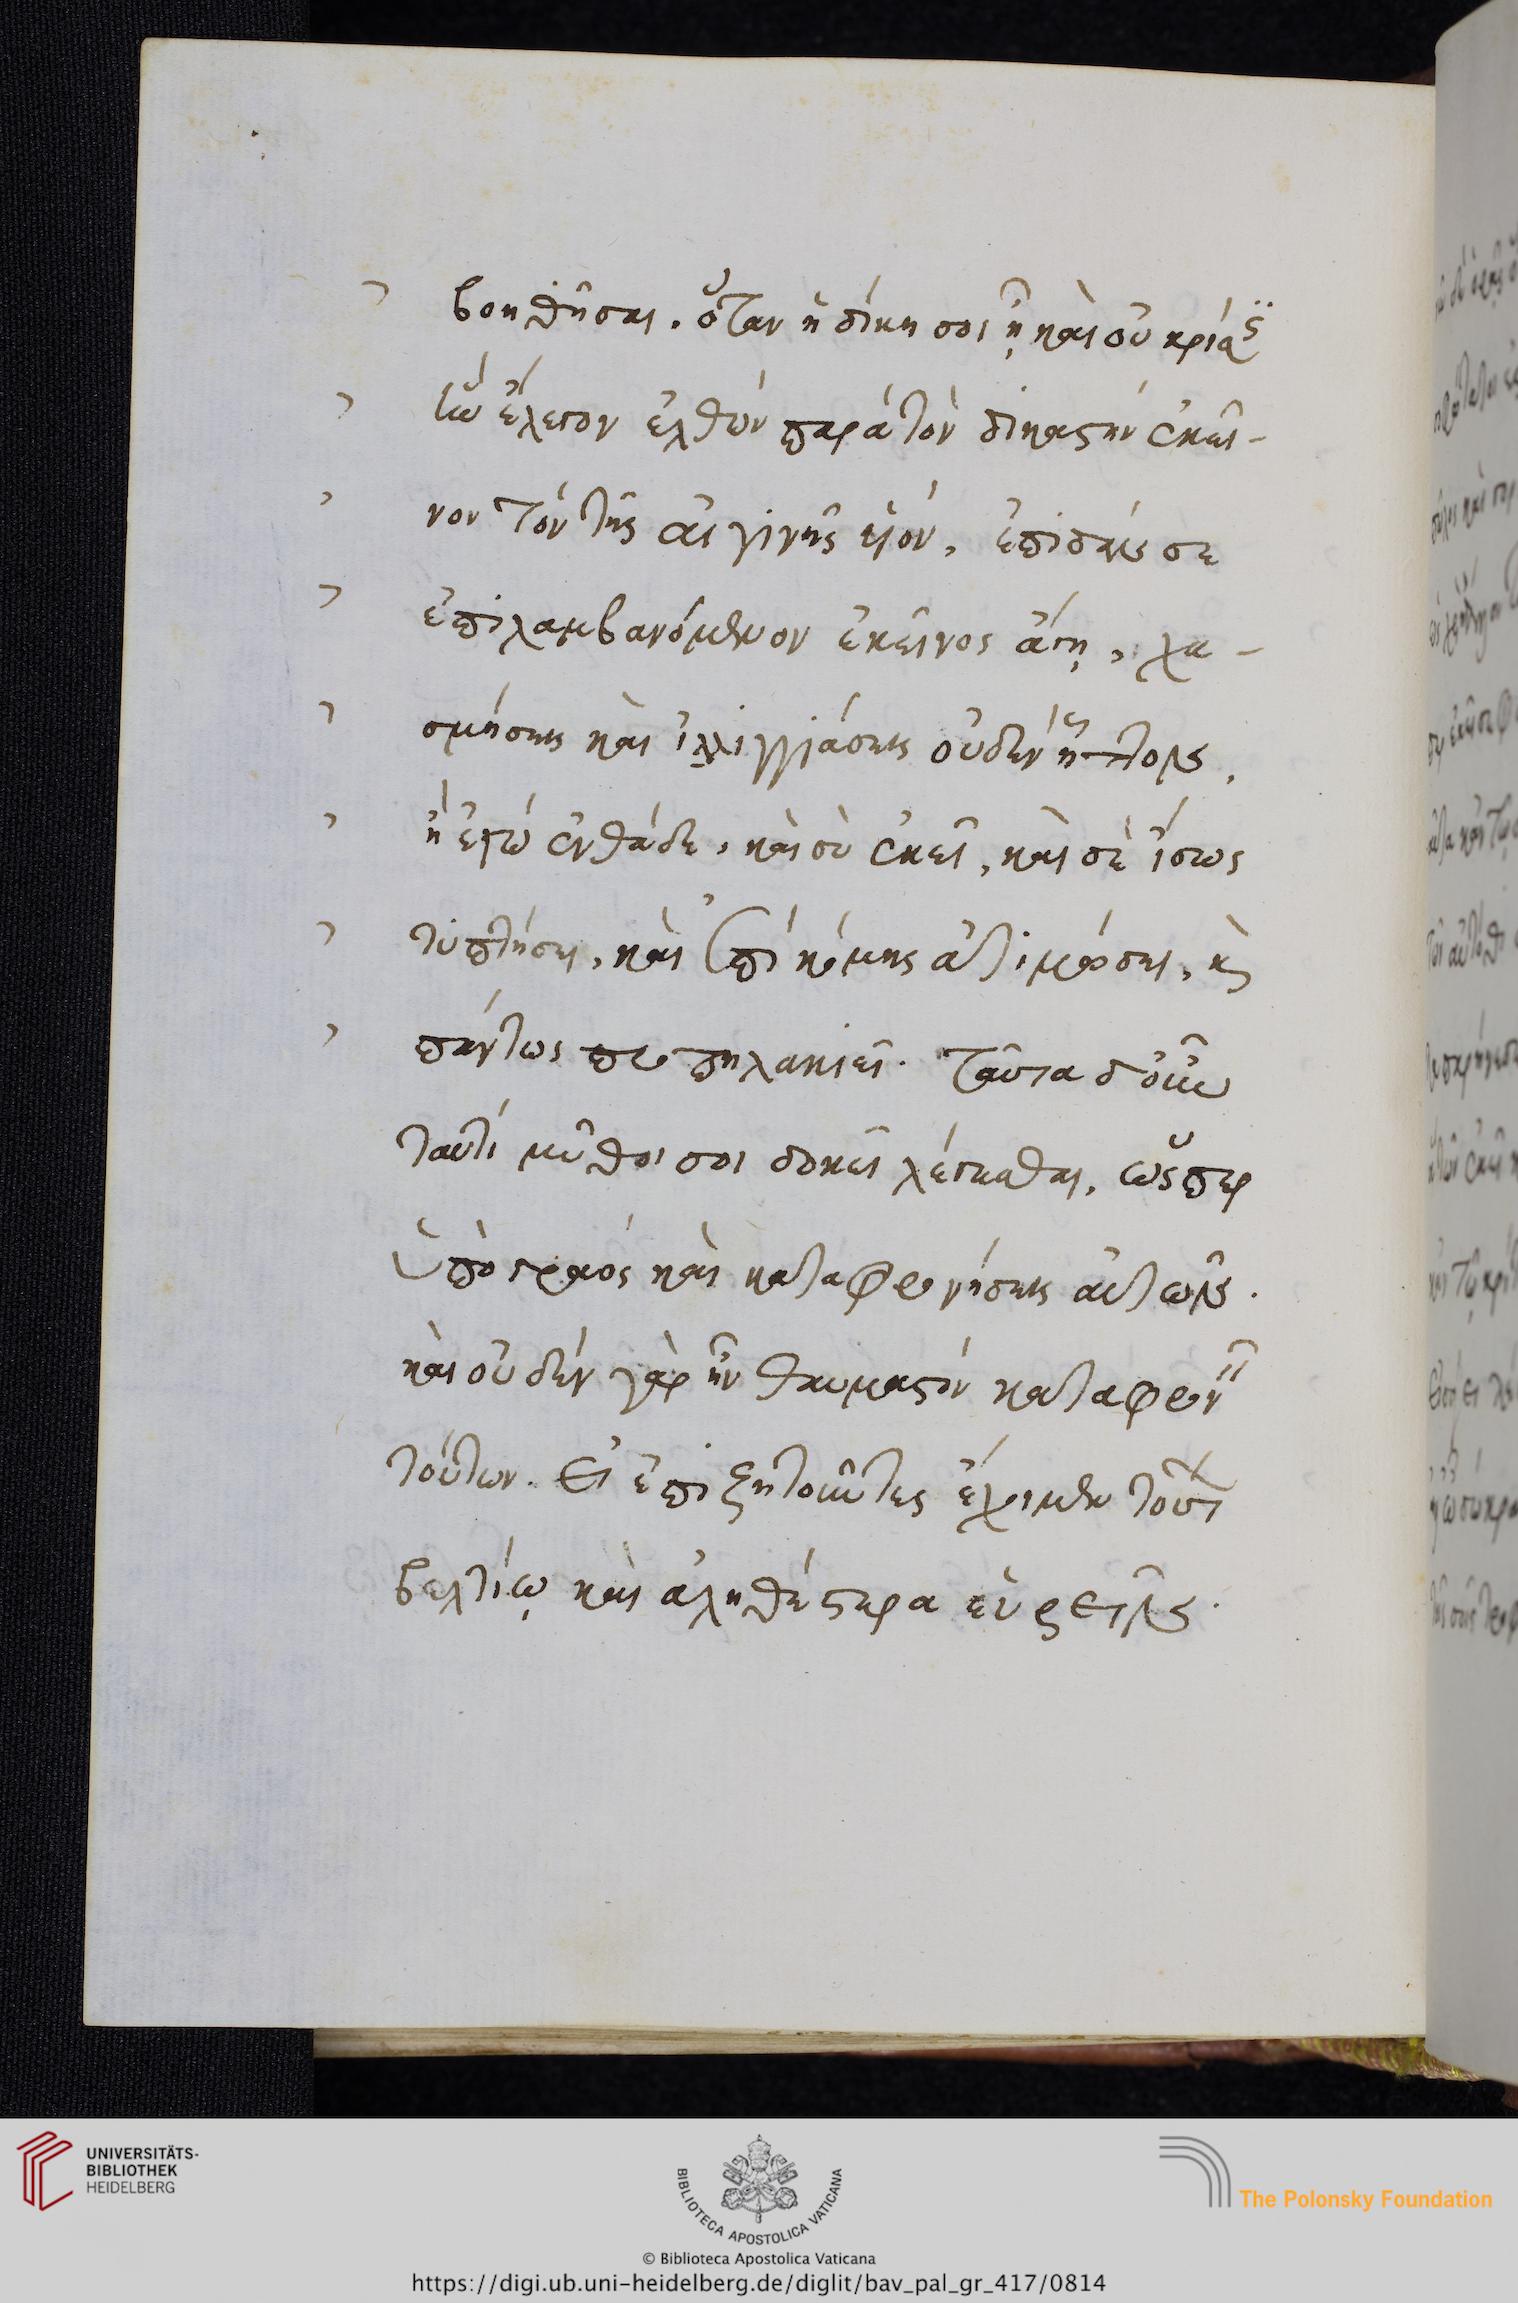 βοηθῆσαι. ὅταν ἡ δίκη σοι ᾖ καὶ οὐ κρίσϊς
ἣν ἔλεγον ἐλθὼν παρὰ τὸν δικαστὴν ἐκεῖ-
νον τὸν τῆς αἰγίνης υἱὸν, ἐπιδάν σε
ἐπιλαμβανόμενον ἐκεῖνος ἄγῃ, χα-
σμήσεις καὶ ἰλλιγγιάσεις οὐδὲν ἧττον,
ἢ ἐγὼ ἐνθάδε, καὶ σὺ ἐκεῖ, καὶ σὲ ἴσως
τυπτήσει, καὶ ἐπὶ κόρρης ἀτίμως, κ
πάντως προπηλακιεῖ. ταῦτα δ' οὖν
ταυτὶ μῦθοι σοι δοκεῖ λέγεσθαι, ὥσπερ
ὑπὸ γραὸς καὶ καταφρονήσεις αὐτῶν.
καὶ οὐδὲν γὰρ ἦν θαυμαστὸν καταφρον
τούτων. εἰ ἐπιζητοῦντες ἔχοιμεν τούτ
βελτίω καὶ ἀληθέστερα εὑρεῖν.
UNIVERSITÄTS-
BIBLIOTHEK
HEIDELBERG
BIBLIOTECA APOSTOLICA VATICANA
The Polonsky Foundation
© Biblioteca Apostolica Vaticana
https://digi.ub.uni-heidelberg.de/diglit/bav_pal_gr_417/0814